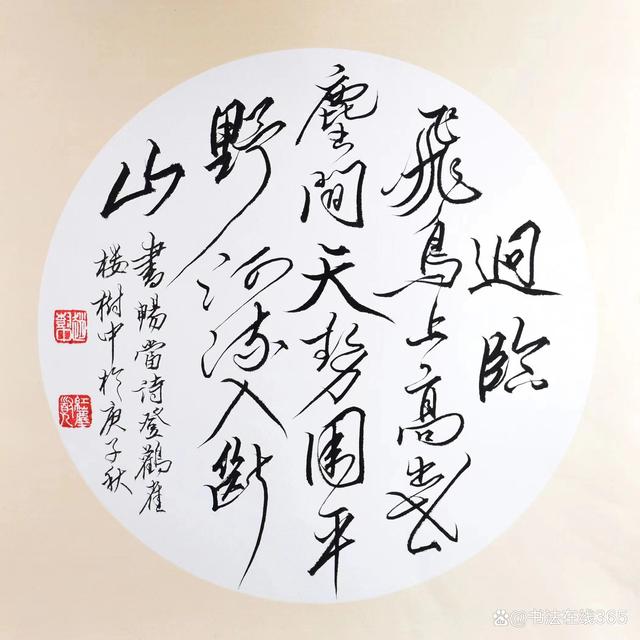 迥臨
飛鳥上高出世
塵間天势圍平
野河流入斷
山
書暢當詩登鸛雀
楼樹中於庚子秋
书法在线365